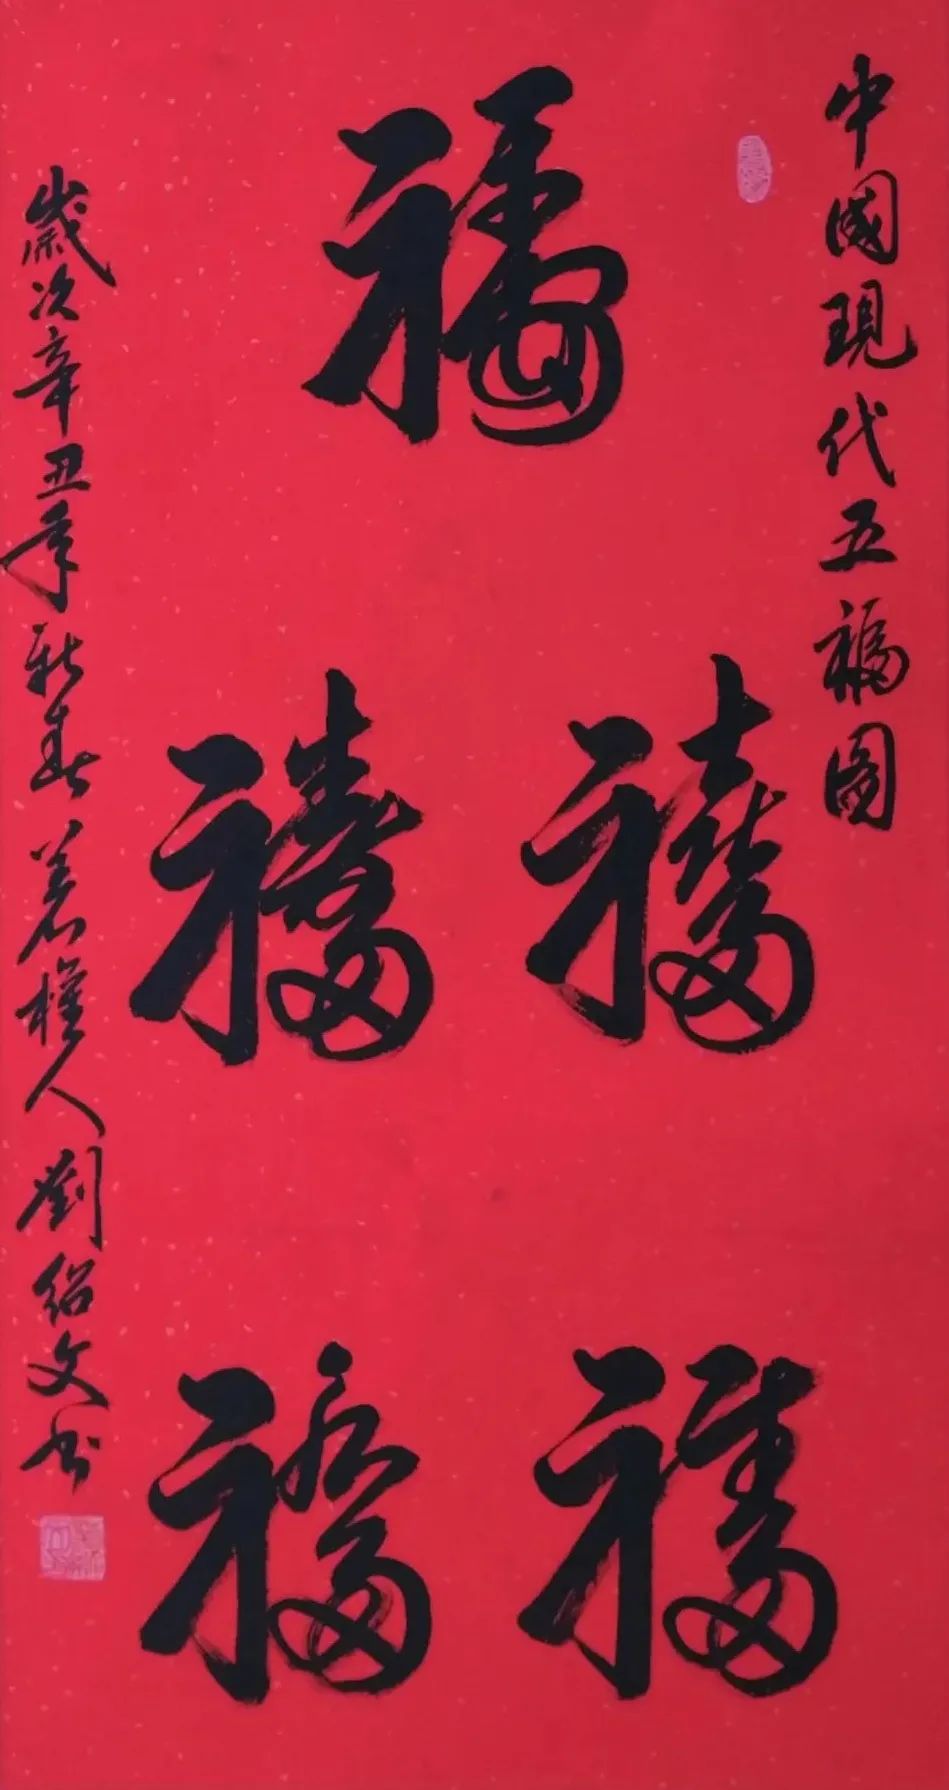 中國現代五福圖
福
福
福
福
福
歲次辛丑年新春
人劉紹文书